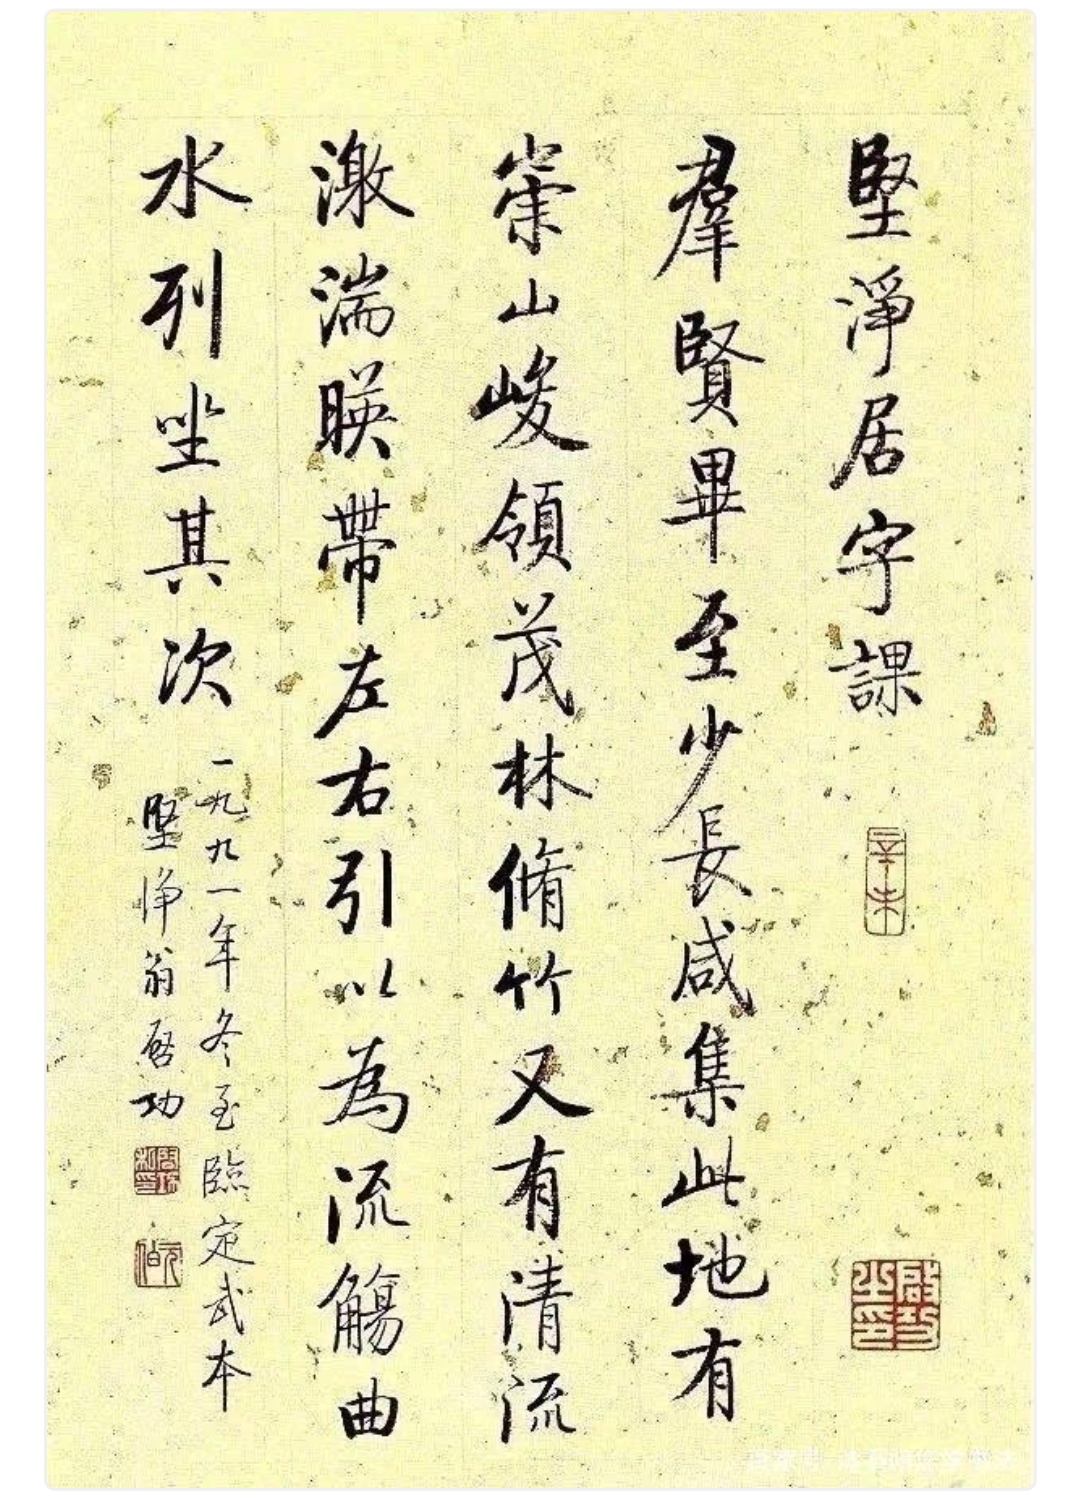 堅淨居字課
辛未
啟功之印
羣賢畢至少長咸集此地有
崇山峻領茂林脩竹又有清流
激湍暎帶左右引以為流觴曲
水列坐其次
一九九一年冬至臨定武本
堅淨翁啓功
啟功私印
元白